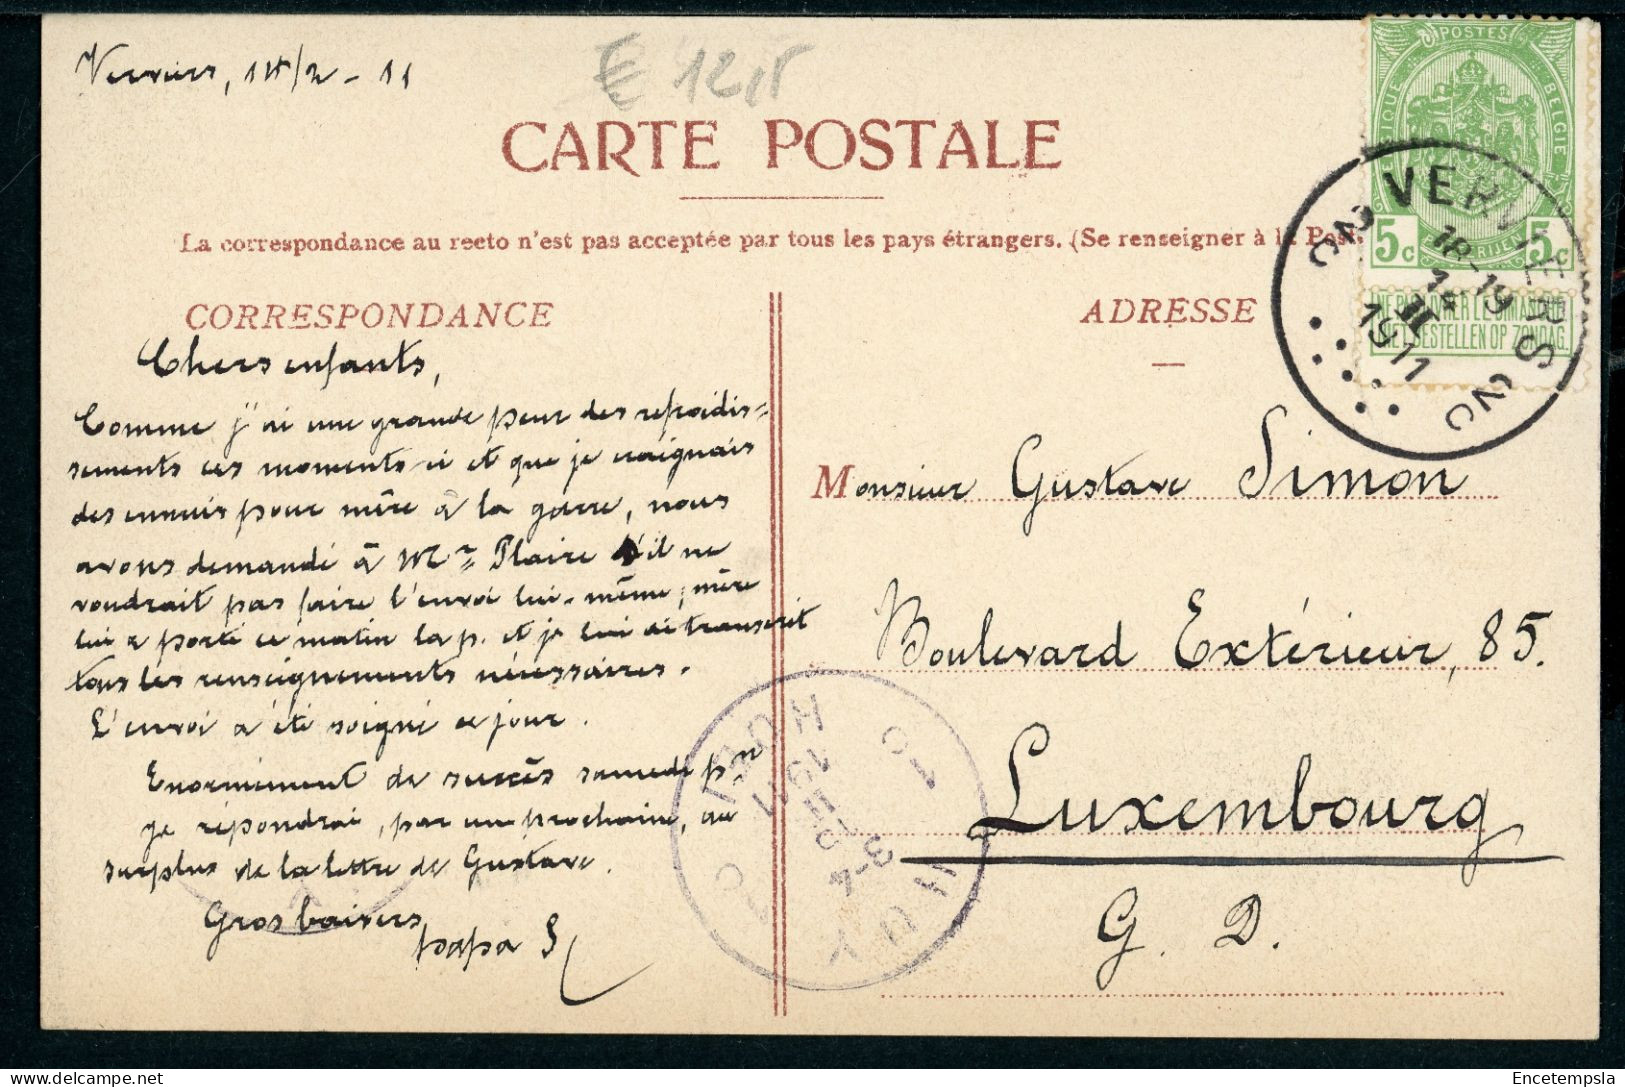 Verviers, 14/2 - 11
€ 12,5
CARTE POSTALE
La correspondance au recto n'est pas acceptée par tous les pays étrangers. (Se renseigner à la Poste
POSTES
BELGIQUE BELGIE
5c 5c
NE PAS LIVRER LE DIMANCHE
NIET BESTELLEN OP ZONDAG
VERVIERS
18-19
14
II
1911
CORRESPONDANCE
ADRESSE
Chers enfants,
Comme j'ai une grande peur des refroidis=
sements ces moments-ci et que je craignais
des ennuis pour mère à la garre, nous
avons demandé à Mr Plaire s'il ne
voudrait pas faire l'envoi lui-même; mère
lui a porté ce matin la p. et je lui ai transcrit
tous les renseignements nécessaires.
L'envoi a été soigné ce jour.
Enormément de succès samedi pn
je répondrai, par une prochaine, au
surplus de la lettre de Gustave.
Gros baisers
papa S
Monsieur Gustave Simon
Boulevard Extérieur, 85.
Luxembourg
G. D.
HUY
1911
II
3-4
HOEI
Encetempsla